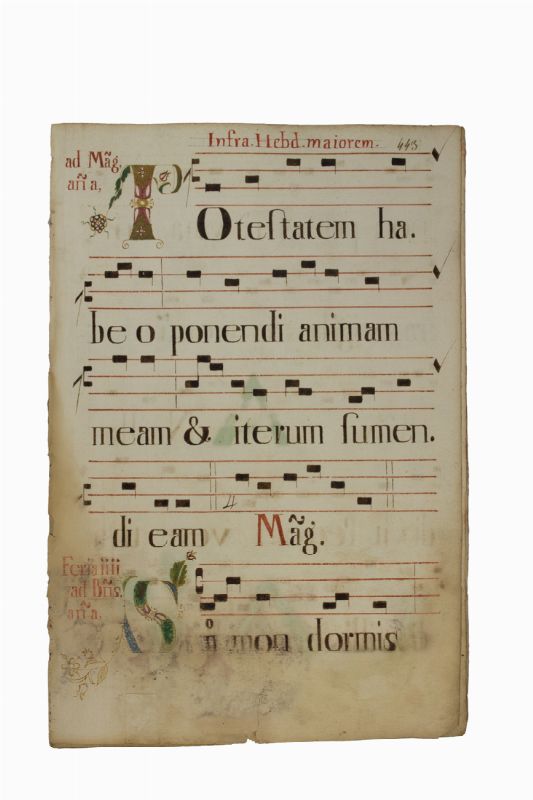 Infra. Hebd. maiorem. 443
ad Mãg.
añã,
POteſtatem ha.
be o ponendi animam
meam & iterum ſumen.
di eam Mãg.
Feria iiii
ad Bñs.
añã,
Simon dormis